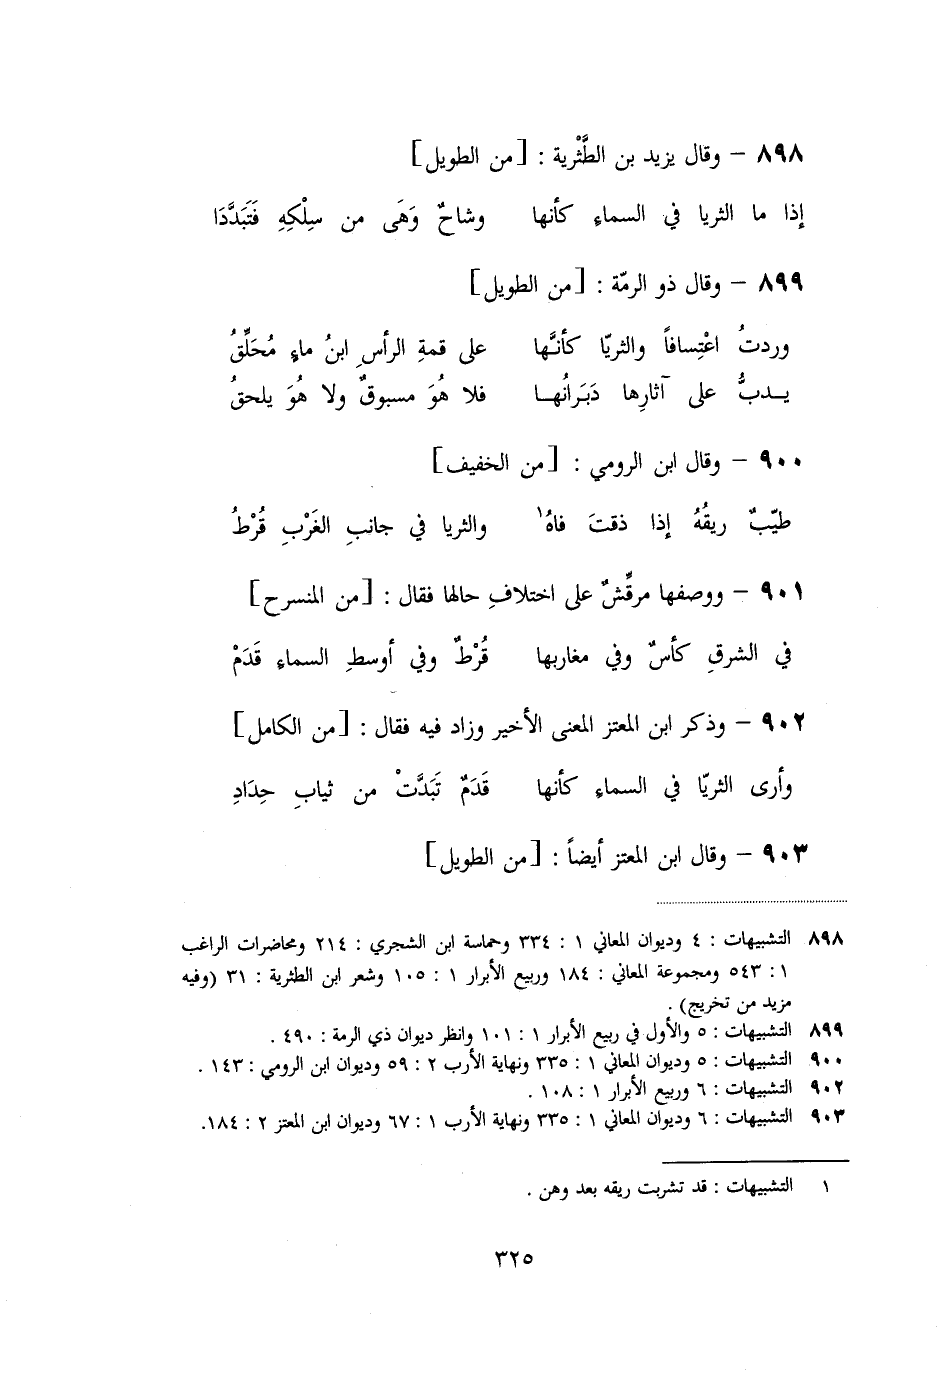 ٨٩٨ – وقال يزيد بن الطَّثْرية : [من الطويل]
إذا ما الثريا في السماءِ كأنها وشاحٌ وَهَى من سِلْكِهِ فَتَبَدَّدَا
٨٩٩ – وقال ذو الرمّة : [من الطويل]
وردتُ اعْتِسافاً والثريّا كأنَّها على قمةِ الرأسِ ابنُ ماءٍ مُحَلِّقُ
يـدبُّ على آثارِها دَبَرانُهـا فلا هُوَ مسبوقٌ ولا هُوَ يلحقُ
٩٠٠ – وقال ابن الرومي : [من الخفيف]
طيّبٌ ريقُهُ إذا ذقتَ فاهُ١ والثريا في جانبِ الغَرْبِ قُرْطُ
٩٠١ – ووصفها مرقِّشٌ على اختلافِ حالها فقال : [من المنسرح]
في الشرقِ كأسٌ وفي مغاربها قُرْطٌ وفي أوسطِ السماءِ قَدَمْ
٩٠٢ – وذكر ابن المعتز المعنى الأخير وزاد فيه فقال : [من الكامل]
وأرى الثريّا في السماءِ كأنها قَدَمٌ تَبَدَّتْ من ثيابِ حِدَادِ
٩٠٣ – وقال ابن المعتز أيضاً : [من الطويل]
٨٩٨ التشبيهات : ٤ وديوان المعاني ١ : ٣٣٤ وحماسة ابن الشجري : ٢١٤ ومحاضرات الراغب
١ : ٥٤٣ ومجموعة المعاني : ١٨٤ وربيع الأبرار ١ : ١٠٥ وشعر ابن الطثرية : ٣١ (وفيه
مزيد من تخريج) .
٨٩٩ التشبيهات : ٥ والأول في ربيع الأبرار ١ : ١٠١ وانظر ديوان ذي الرمة : ٤٩٠ .
٩٠٠ التشبيهات : ٥ وديوان المعاني ١ : ٣٣٥ ونهاية الأرب ٢ : ٥٩ وديوان ابن الرومي : ١٤٣ .
٩٠٢ التشبيهات : ٦ وربيع الأبرار ١ : ١٠٨ .
٩٠٣ التشبيهات : ٦ وديوان المعاني ١ : ٣٣٥ ونهاية الأرب ١ : ٦٧ وديوان ابن المعتز ٢ : ١٨٤.
١ التشبيهات : قد تشربت ريقه بعد وهن .
٣٢٥